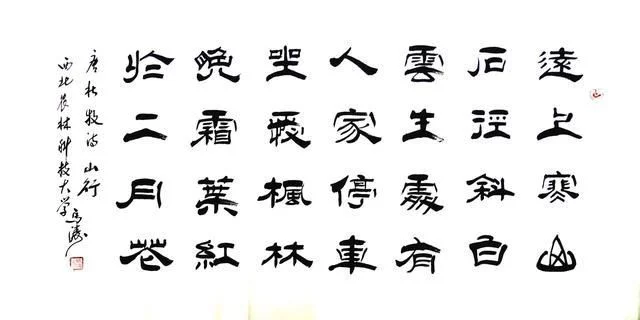 遠上寒山
石徑斜白
雲生處有
人家停車
坐愛楓林
晚霜葉紅
於二月花
唐杜牧诗山行
西北农林科技大学